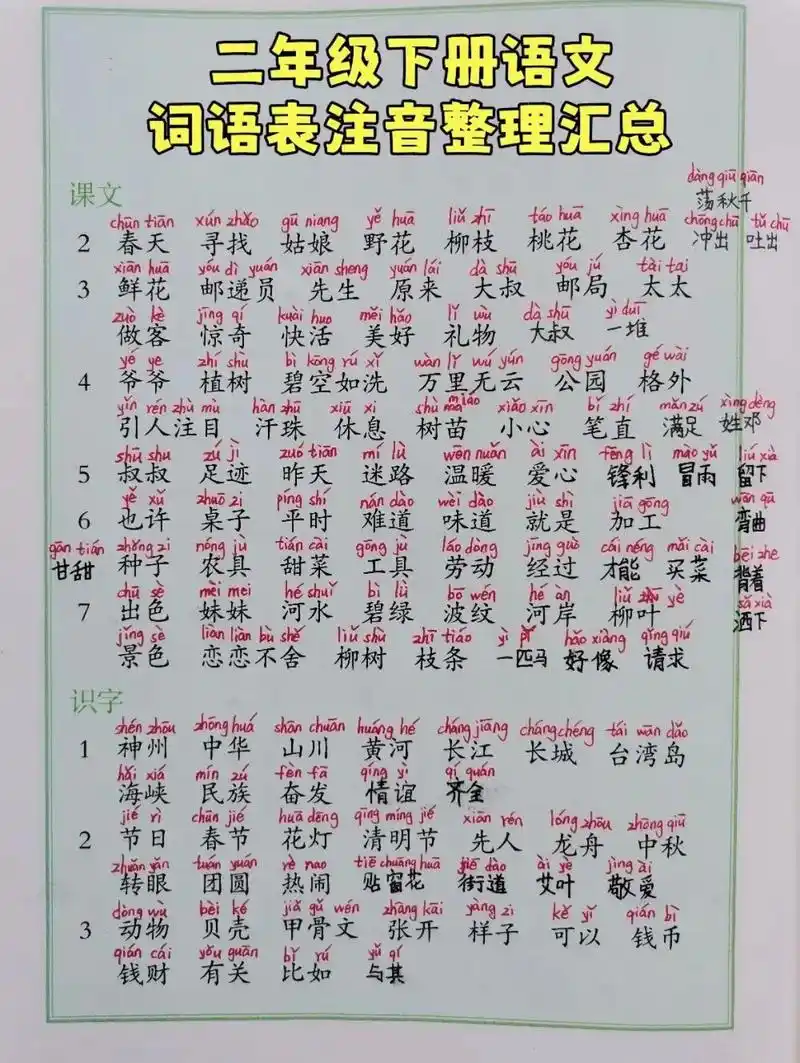 二年级下册语文
词语表注音整理汇总
课文
dàng qiū qiān
荡秋千
chūn tiān xún zhǎo gū niang yě huā liǔ zhī táo huā xìng huā chōng chū tǔ chū
2 春天 寻找 姑娘 野花 柳枝 桃花 杏花 冲出 吐出
xiān huā yóu dì yuán xiān sheng yuán lái dà shū yóu jú tài tai
3 鲜花 邮递员 先生 原来 大叔 邮局 太太
zuò kè jīng qí kuài huo měi hǎo lǐ wù dà shū yì duī
做客 惊奇 快活 美好 礼物 大叔 一堆
yé ye zhí shù bì kōng rú xǐ wàn lǐ wú yún gōng yuán gé wài
4 爷爷 植树 碧空如洗 万里无云 公园 格外
yǐn rén zhù mù hàn zhū xiū xi shù miáo xiǎo xīn bǐ zhí mǎn zú xìng dèng
引人注目 汗珠 休息 树苗 小心 笔直 满足 姓邓
shū shu zú jì zuó tiān mí lù wēn nuǎn ài xīn fēng lì mào yǔ liú xià
5 叔叔 足迹 昨天 迷路 温暖 爱心 锋利 冒雨 留下
yě xǔ zhuō zi píng shí nán dào wèi dào jiù shì jiā gōng wān qū
6 也许 桌子 平时 难道 味道 就是 加工 弯曲
gān tián zhǒng zi nóng jù tián cài gōng jù láo dòng jīng guò cái néng mǎi cài bēi zhe
甘甜 种子 农具 甜菜 工具 劳动 经过 才能 买菜 背着
chū sè mèi mei hé shuǐ bì lǜ bō wén hé àn liǔ yè sǎ xià
7 出色 妹妹 河水 碧绿 波纹 河岸 柳叶 洒下
jǐng sè liàn liàn bù shě liǔ shù zhī tiáo yì pǐ hǎo xiàng qǐng qiú
景色 恋恋不舍 柳树 枝条 一匹马 好像 请求
识字
shén zhōu zhōng huá shān chuān huáng hé cháng jiāng cháng chéng tái wān dǎo
1 神州 中华 山川 黄河 长江 长城 台湾岛
hǎi xiá mín zú fèn fā qíng yì qí quán
海峡 民族 奋发 情谊 齐全
jié rì chūn jié huā dēng qīng míng jié xiān rén lóng zhōu zhōng qiū
2 节日 春节 花灯 清明节 先人 龙舟 中秋
zhuǎn yǎn tuán yuán rè nao tiē chuāng huā jiē dào ài yè jìng ài
转眼 团圆 热闹 贴窗花 街道 艾叶 敬爱
dòng wù bèi ké jiǎ gǔ wén zhāng kāi yàng zi kě yǐ qián bì
3 动物 贝壳 甲骨文 张开 样子 可以 钱币
qián cái yǒu guān bǐ rú yǔ qí
钱财 有关 比如 与其